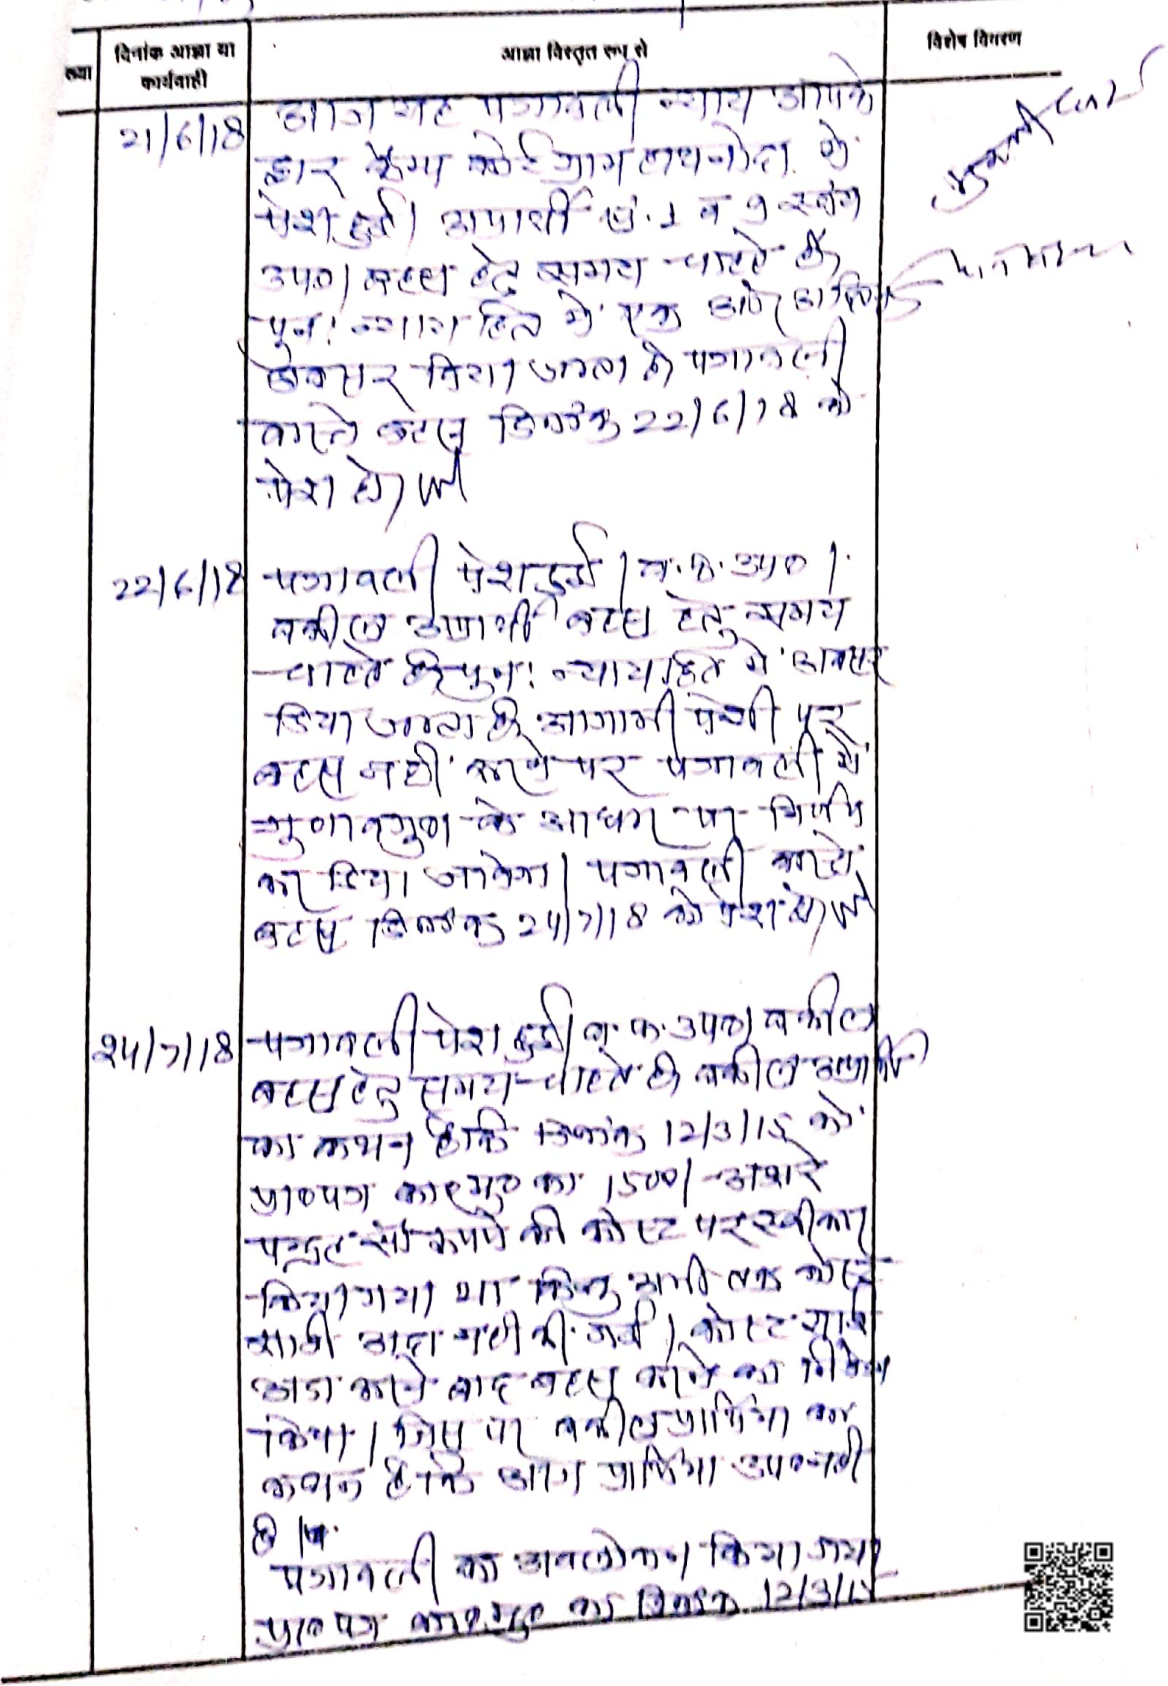 ख्या
दिनांक आज्ञा या
कार्यवाही
आज्ञा विस्तृत रूप से
विशेष विवरण
21/6/18
आज यह पत्रावली न्याय आपके
द्वार केम्प कोर्ट ग्राम में
पेश हुई। अप्रार्थी सं. 1 व 9 स्वंय
उप०। बहस हेतु समय चाहते है
पुनः न्याय हित में एक और
अवसर दिया जाता है पत्रावली
वास्ते बहस दिनांक 22/6/18 को
पेश हो।
22/6/18
पत्रावली पेश हुई। व.फ. उप०।
वकील अप्रार्थी बहस हेतु समय
चाहते है पुनः न्याय हित में अवसर
दिया जाता है आगामी पेशी पर
बहस नही करने पर पत्रावली में
गुणावगुण के आधार पर निर्णय
कर दिया जावेगा। पत्रावली वास्ते
बहस दिनांक 24/7/18 को पेश हो।
24/7/18
पत्रावली पेश हुई। व.फ. उप०। वकील
बहस हेतु समय चाहते है वकील अप्रार्थी
का कथन है कि दिनांक 12/3/15 को
प्रा०पत्र का 1500/- अक्षरे
पन्द्रह सौ रूपये की कोस्ट पर स्वीकार
किया गया था किन्तु अभी तक कोस्ट
राशी अदा नही की गई। कोस्ट राशि
अदा करने बाद बहस करने का निवेदन
किया। जिस पर वकील प्रार्थिया का
कथन है कि आज प्रार्थिया उप० नही
है।
पत्रावली का अवलोकन किया गया
प्रा० पत्र का दिनांक 12/3/15